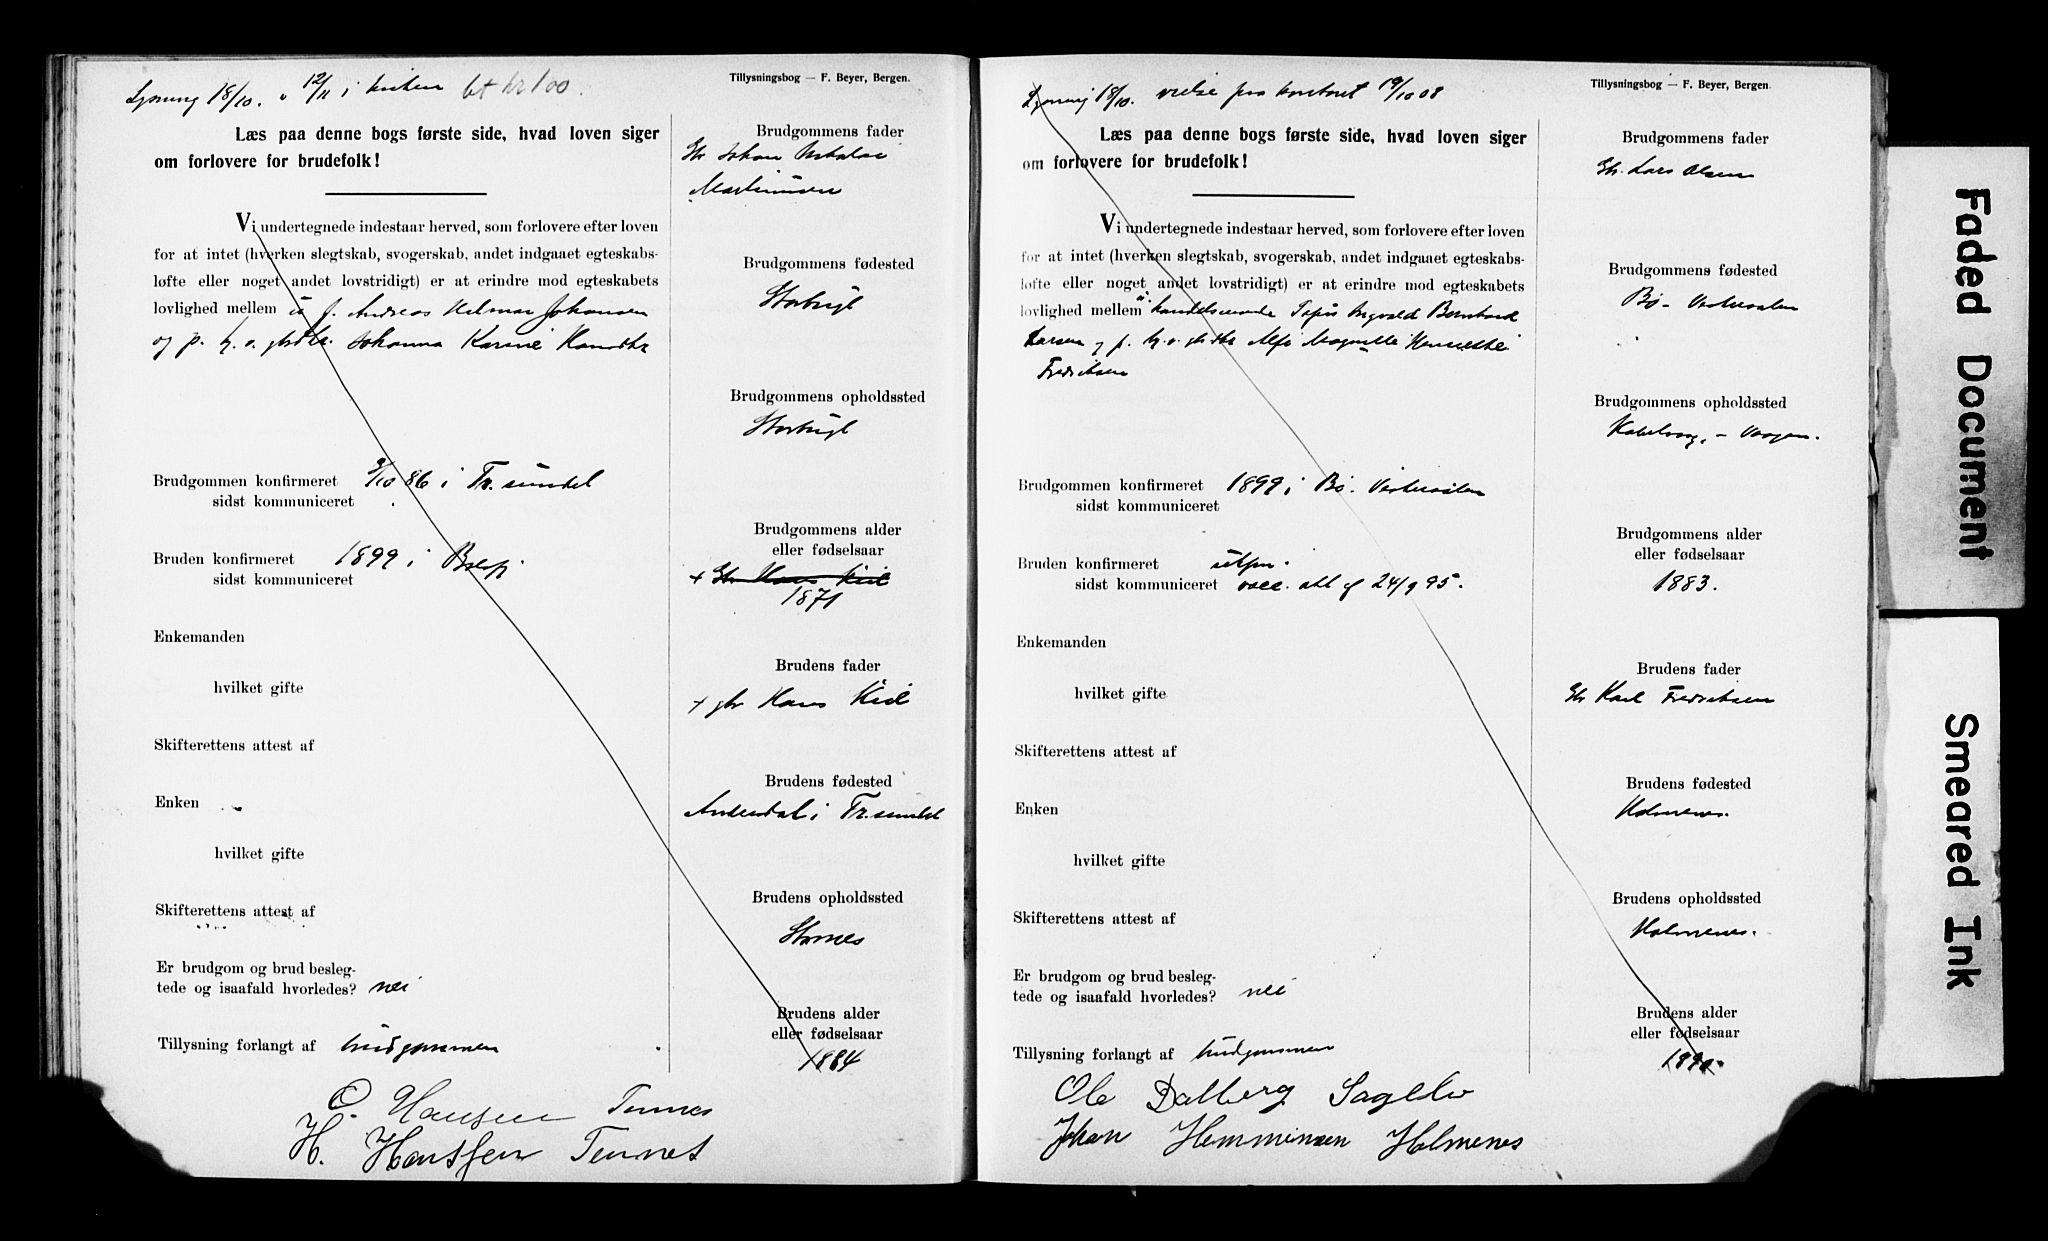 Lysning 18/10. v 12/11 i kirken bet kr 1.00
Tillysningsbog — F. Beyer, Bergen.
Læs paa denne bogs første side, hvad loven siger
om forlovere for brudefolk!
Vi undertegnede indestaar herved, som forlovere efter loven
for at intet (hverken slegtskab, svogerskab, andet indgaaet egteskabs-
løfte eller noget andet lovstridigt) er at erindre mod egteskabets
lovlighed mellem u f. Andreas Hilmar Johansen
og p. h. o. gbrdtr. Johanna Karine Hansdtr
Brudgommen konfirmeret 3/10 86 i Tr.sundet
sidst kommuniceret
Bruden konfirmeret 1899 i
sidst kommuniceret
Enkemanden
hvilket gifte
Skifterettens attest af
Enken
hvilket gifte
Skifterettens attest af
Er brudgom og brud besleg-
tede og isaafald hvorledes? nei
Tillysning forlangt af brudgommen
Brudgommens fader
Gbr Johan
Martinusen
Brudgommens fødested
Brudgommens opholdssted
Brudgommens alder
eller fødselsaar
+ Gbr Hans
1871
Brudens fader
+ gbr Hans
Brudens fødested
i Tr.sundet
Brudens opholdssted
Stornes
Brudens alder
eller fødselsaar
1884
O. Hansen Tennes
H. Hansen Tennes
Lysning 18/10. vielse paa kontoret 19/10 08
Tillysningsbog — F. Beyer, Bergen.
Læs paa denne bogs første side, hvad loven siger
om forlovere for brudefolk!
Vi undertegnede indestaar herved, som forlovere efter loven
for at intet (hverken slegtskab, svogerskab, andet indgaaet egteskabs-
løfte eller noget andet lovstridigt) er at erindre mod egteskabets
lovlighed mellem u. Ingvald Bernhard
Larsen og p. h. o. gbrdtr Magnella Henriette
Fredriksen
Brudgommen konfirmeret 1899 i Bø. Vesteraalen
sidst kommuniceret
Bruden konfirmeret
sidst kommuniceret vacc. att af 24/9 95.
Enkemanden
hvilket gifte
Skifterettens attest af
Enken
hvilket gifte
Skifterettens attest af
Er brudgom og brud besleg-
tede og isaafald hvorledes? nei
Tillysning forlangt af brudgommen
Brudgommens fader
Gbr. Lars Olsen
Brudgommens fødested
Bø - Vesteraalen
Brudgommens opholdssted
Kabelvaag, - Vaagan.
Brudgommens alder
eller fødselsaar
1883.
Brudens fader
Gbr Karl Fredriksen
Brudens fødested
Holmenes.
Brudens opholdssted
Holmenes.
Brudens alder
eller fødselsaar
1890.
Ole Dalberg Sagelv
Johan Hemminsen Holmenes
Faded Document
Smeared Ink